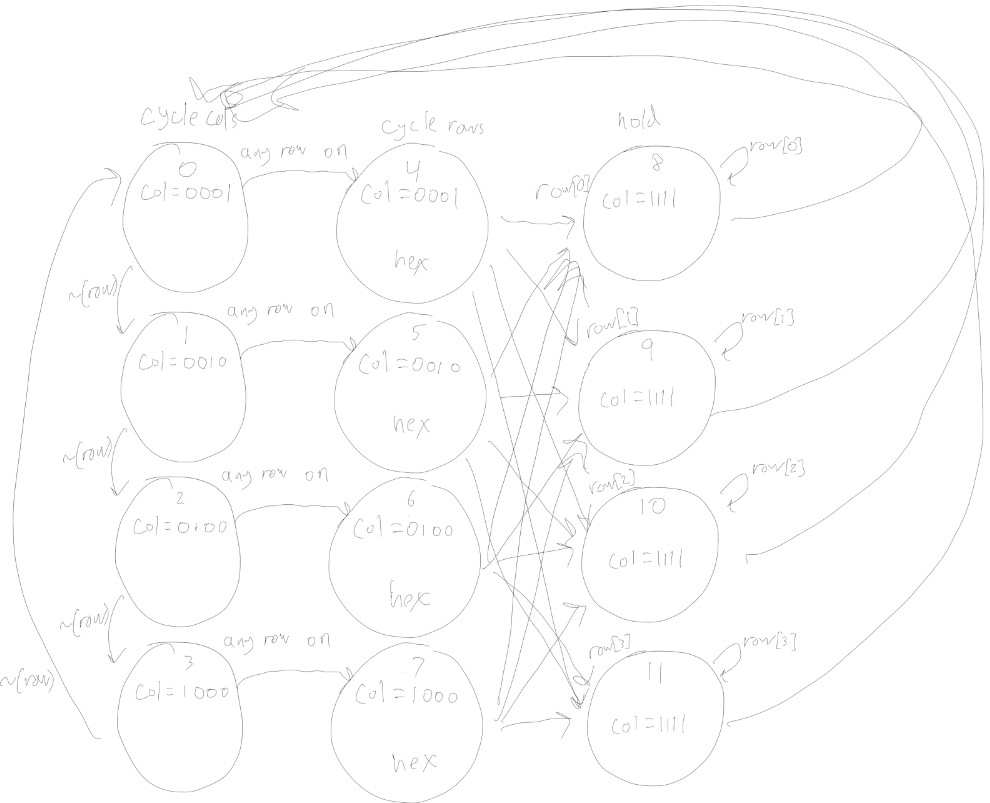 cycle cols
cycle rows
hold
0
col=0001
any row on
4
col=0001
hex
row[0]
8
col=1111
row[0]
~(row)
1
col=0010
any row on
5
col=0010
hex
row[1]
9
col=1111
row[1]
~(row)
2
col=0100
any row on
6
col=0100
hex
row[2]
10
col=1111
row[2]
~(row)
3
col=1000
any row on
7
col=1000
hex
row[3]
11
col=1111
row[3]
~(row)